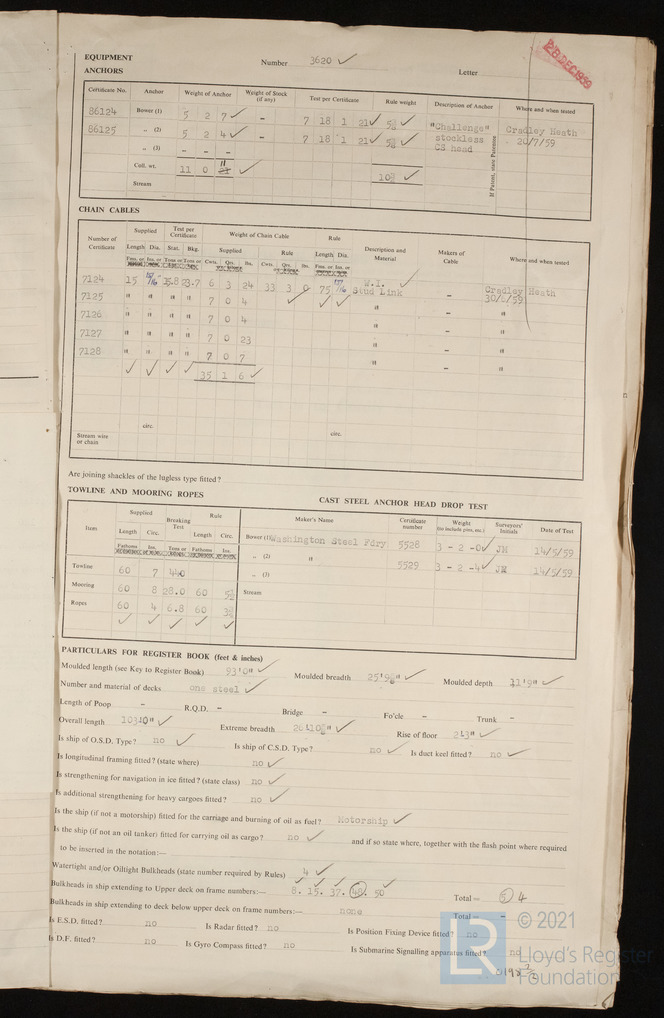 EQUIPMENT
Number 3620 ✓
Letter
28 DEC 1959
ANCHORS
Certificate No. Anchor Weight of Anchor Weight of Stock (if any) Test per Certificate Rule weight Description of Anchor Where and when tested
If Patent, state Patentee
86124 Bower (1) 5 2 7 ✓ - 7 18 1 21 ✓ "Challenge" Cradley Heath
86125 „ (2) 5 2 4 ✓ - 7 18 1 21 ✓ stockless 20/7/59
„ (3) - - - CS head
Coll. wt. 11 0 11 ✓
Stream
CHAIN CABLES
Number of Certificate Supplied Test per Certificate Weight of Chain Cable Rule Description and Material Makers of Cable Where and when tested
Length Dia. Stat. Bkg. Supplied Rule Length Dia.
Fms. or Ins. or Tons or Tons or Cwts. Qrs. lbs. Cwts. Qrs. lbs. Fms. or Ins. or
7124 15 15/16 15.8 23.7 6 3 24 33 3 0 75 15/16 W.I. Stud Link - Cradley Heath
7125 " " " " 7 0 4 ✓ ✓ ✓ " - 30/6/59 "
7126 " " " " 7 0 4 " - "
7127 " " " " 7 0 23 " - "
7128 " " " " 7 0 7 " - "
✓ ✓ ✓ ✓ 35 1 6 ✓
circ. circ.
Stream wire or chain
Are joining shackles of the lugless type fitted?
TOWLINE AND MOORING ROPES
CAST STEEL ANCHOR HEAD DROP TEST
Item Supplied Breaking Test Rule Maker's Name Certificate number Weight (to include pins, etc.) Surveyors' Initials Date of Test
Length Circ. Length Circ.
Fathoms Ins. Tons or Fathoms Ins.
Bower (1) Washington Steel Fdry 5528 3 - 2 - 0 ✓ JM 14/5/59
„ (2) " 5529 3 - 2 - 4 ✓ JM 14/5/59
„ (3)
Stream
Towline 60 7
Mooring 60 8 28.0 60
Ropes 60 4 6.8 60
✓ ✓ ✓ ✓ ✓
PARTICULARS FOR REGISTER BOOK (feet & inches)
Moulded length (see Key to Register Book) 93'0" ✓ Moulded breadth ✓ Moulded depth 11'9" ✓
Number and material of decks one steel ✓
Length of Poop - R.Q.D. - Bridge - Fo'cle - Trunk -
Overall length ✓ Extreme breadth ✓ Rise of floor 2'3" ✓
Is ship of O.S.D. Type? no ✓ Is ship of C.S.D. Type? no ✓ Is duct keel fitted? no ✓
Is longitudinal framing fitted? (state where) no ✓
Is strengthening for navigation in ice fitted? (state class) no ✓
Is additional strengthening for heavy cargoes fitted? no ✓
Is the ship (if not a motorship) fitted for the carriage and burning of oil as fuel? Motorship ✓
Is the ship (if not an oil tanker) fitted for carrying oil as cargo? no ✓ and if so state where, together with the flash point where required
to be inserted in the notation:—
Watertight and/or Oiltight Bulkheads (state number required by Rules) 4 ✓
Bulkheads in ship extending to Upper deck on frame numbers:— 8. 15. 37. 48. 50 Total = 5 4
Bulkheads in ship extending to deck below upper deck on frame numbers:— none Total = -
Is E.S.D. fitted? no Is Radar fitted? no Is Position Fixing Device fitted? no
Is D.F. fitted? no Is Gyro Compass fitted? no Is Submarine Signalling apparatus fitted? no
LR
© 2021
Lloyd's Register
Foundation